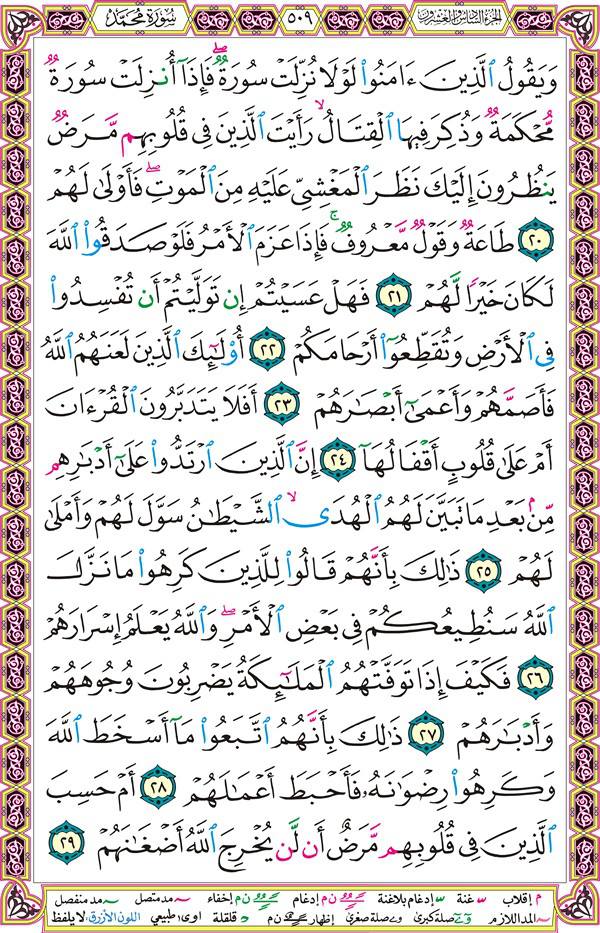 الجزء السادس والعشرون ٥٠٩ سورة محمد
وَيَقُولُ ٱلَّذِينَ ءَامَنُوا۟ لَوْلَا نُزِّلَتْ سُورَةٌ ۖ فَإِذَآ أُنزِلَتْ سُورَةٌ
مُّحْكَمَةٌ وَذُكِرَ فِيهَا ٱلْقِتَالُ ۙ رَأَيْتَ ٱلَّذِينَ فِى قُلُوبِهِم مَّرَضٌ
يَنظُرُونَ إِلَيْكَ نَظَرَ ٱلْمَغْشِىِّ عَلَيْهِ مِنَ ٱلْمَوْتِ ۖ فَأَوْلَىٰ لَهُمْ
٢٠ طَاعَةٌ وَقَوْلٌ مَّعْرُوفٌ ۚ فَإِذَا عَزَمَ ٱلْأَمْرُ فَلَوْ صَدَقُوا۟ ٱللَّهَ
لَكَانَ خَيْرًا لَّهُمْ ٢١ فَهَلْ عَسَيْتُمْ إِن تَوَلَّيْتُمْ أَن تُفْسِدُوا۟
فِى ٱلْأَرْضِ وَتُقَطِّعُوٓا۟ أَرْحَامَكُمْ ٢٢ أُو۟لَـٰٓئِكَ ٱلَّذِينَ لَعَنَهُمُ ٱللَّهُ
فَأَصَمَّهُمْ وَأَعْمَىٰٓ أَبْصَـٰرَهُمْ ٢٣ أَفَلَا يَتَدَبَّرُونَ ٱلْقُرْءَانَ
أَمْ عَلَىٰ قُلُوبٍ أَقْفَالُهَآ ٢٤ إِنَّ ٱلَّذِينَ ٱرْتَدُّوا۟ عَلَىٰٓ أَدْبَـٰرِهِم
مِّنۢ بَعْدِ مَا تَبَيَّنَ لَهُمُ ٱلْهُدَى ۙ ٱلشَّيْطَـٰنُ سَوَّلَ لَهُمْ وَأَمْلَىٰ
لَهُمْ ٢٥ ذَٰلِكَ بِأَنَّهُمْ قَالُوا۟ لِلَّذِينَ كَرِهُوا۟ مَا نَزَّلَ
ٱللَّهُ سَنُطِيعُكُمْ فِى بَعْضِ ٱلْأَمْرِ ۖ وَٱللَّهُ يَعْلَمُ إِسْرَارَهُمْ
٢٦ فَكَيْفَ إِذَا تَوَفَّتْهُمُ ٱلْمَلَـٰٓئِكَةُ يَضْرِبُونَ وُجُوهَهُمْ
وَأَدْبَـٰرَهُمْ ٢٧ ذَٰلِكَ بِأَنَّهُمُ ٱتَّبَعُوا۟ مَآ أَسْخَطَ ٱللَّهَ
وَكَرِهُوا۟ رِضْوَٰنَهُۥ فَأَحْبَطَ أَعْمَـٰلَهُمْ ٢٨ أَمْ حَسِبَ
ٱلَّذِينَ فِى قُلُوبِهِم مَّرَضٌ أَن لَّن يُخْرِجَ ٱللَّهُ أَضْغَـٰنَهُمْ ٢٩
م إقلاب غنة إدغام بلاغنة ن م إدغام ن م إخفاء مد متصل مد منفصل
المد اللازم صلة كبرى صلة صغرى إظهار ن م قلقلة اوى؛ طبيعي اللون الأزرق: لا يلفظ